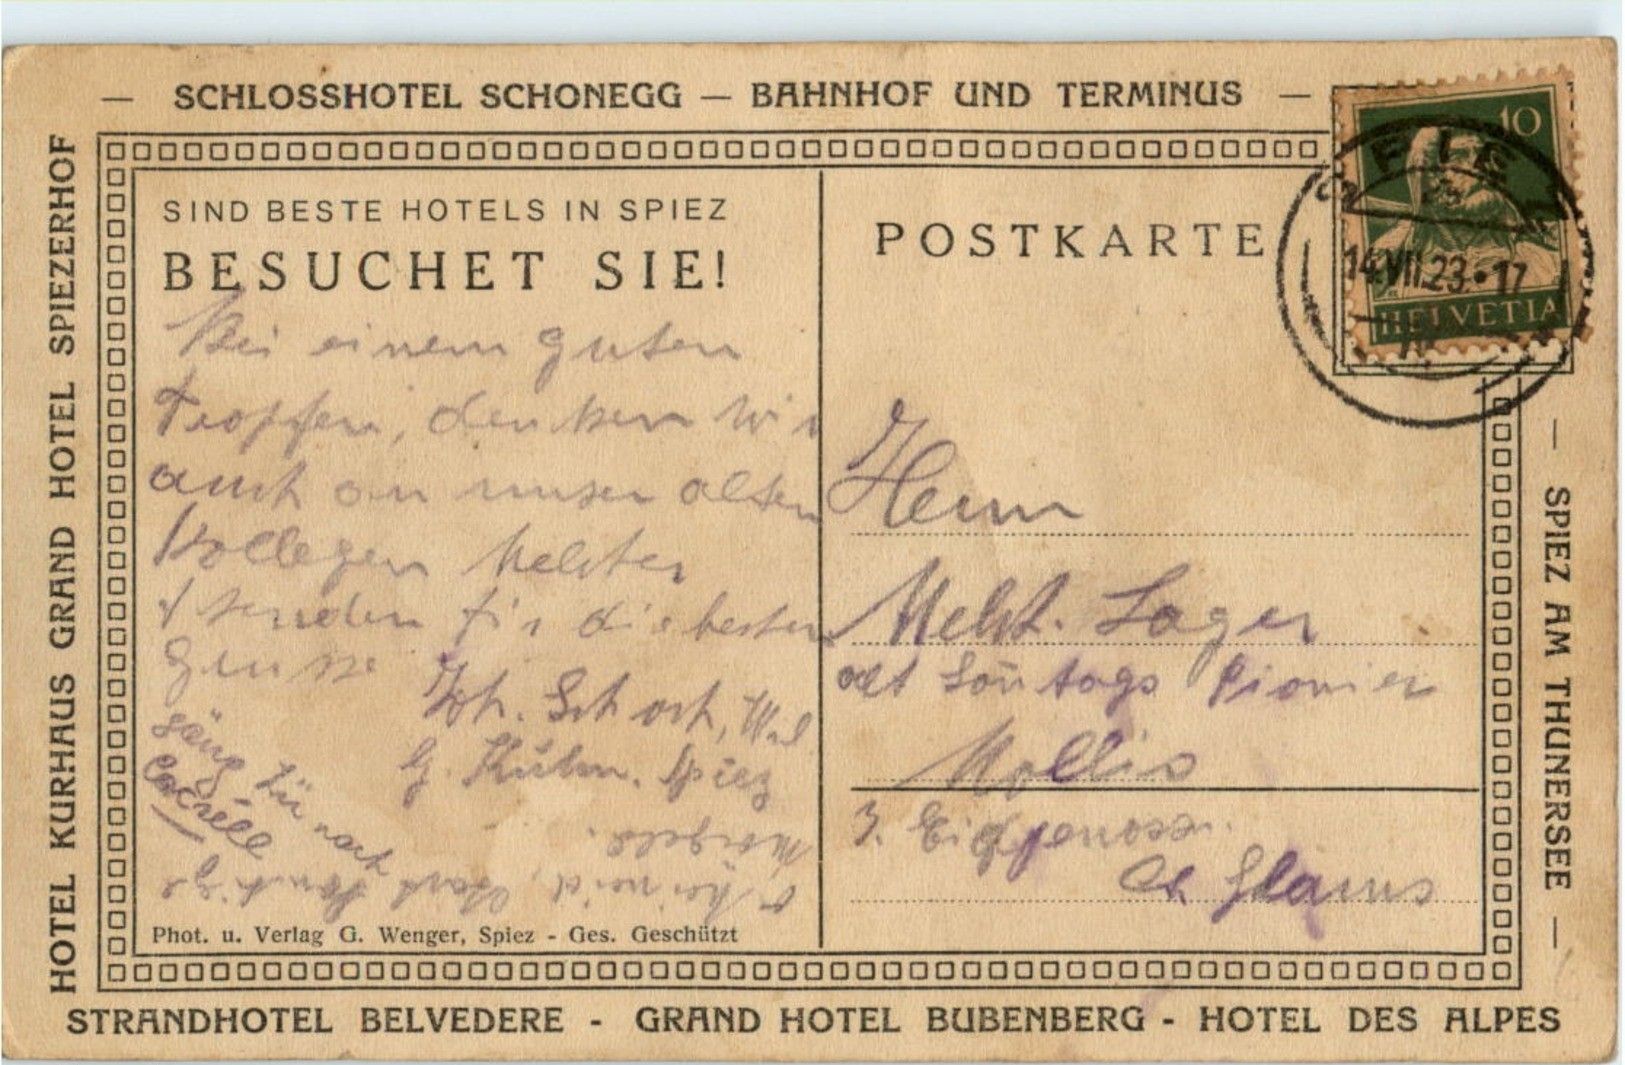 — SCHLOSSHOTEL SCHONEGG — BAHNHOF UND TERMINUS —
HOTEL KURHAUS GRAND HOTEL SPIEZERHOF
SIND BESTE HOTELS IN SPIEZ
BESUCHET SIE!
Bei einem guten
Tropfen, denken wir
auch an unser alten
Kollegen Melchter
& senden für die besten
Grüsse
Joh. Schoch, Wal
G. Kuhn. Spiez
gäng
nach
Phot. u. Verlag G. Wenger, Spiez - Ges. Geschützt
POSTKARTE
10
SPIEZ
14.VII.23.•17
HELVETIA
Herrn
Melch. Lager
alt Sontags Pionier
Mollis
3. Eidgenoss.
Ct. Glarus
— SPIEZ AM THUNERSEE —
STRANDHOTEL BELVEDERE - GRAND HOTEL BUBENBERG - HOTEL DES ALPES